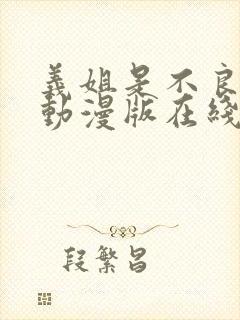 義姐是不良
動漫版在綫
段繁昌